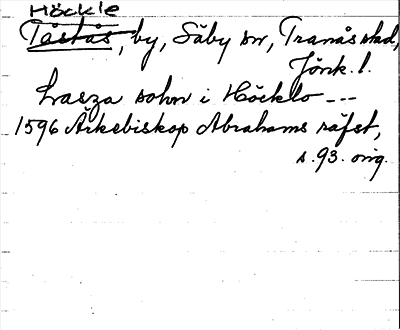 Höckle
Tåstås, by, Säby sn, Tranås stad,
Jönk. l.
Lasza sohn i Höcklo ---
1596 Ärkebiskop Abrahams räfst,
s. 93. orig.